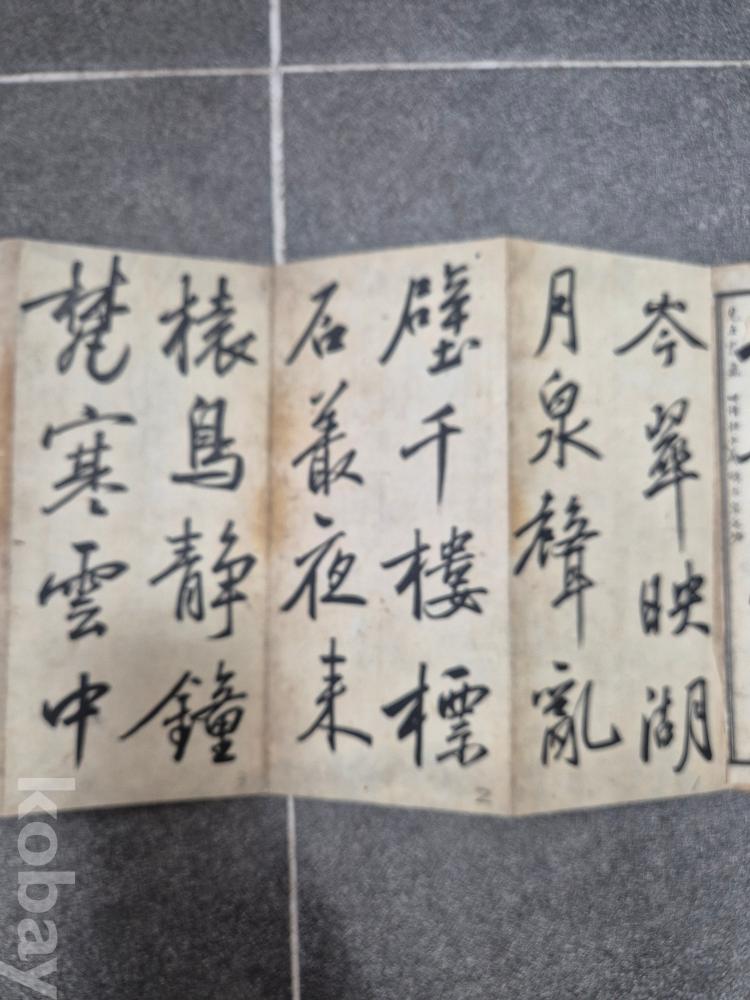 岑翠映湖
月泉聲亂
壁千樓標
石叢夜来
猿鳥静鐘
梵寒雲中
kobay